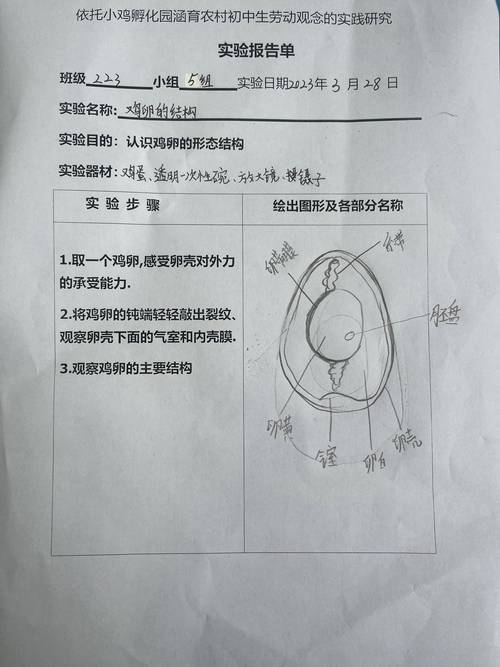 依托小鸡孵化园涵育农村初中生劳动观念的实践研究
实验报告单
班级 223 小组 5组 实验日期2023年 3 月 28 日
实验名称: 鸡卵的结构
实验目的: 认识鸡卵的形态结构
实验器材: 鸡蛋、透明一次性碗、放大镜、镊子
实 验 步 骤
绘出图形及各部分名称
1.取一个鸡卵,感受卵壳对外力
的承受能力.
2.将鸡卵的钝端轻轻敲出裂纹、
观察卵壳下面的气室和内壳膜.
3.观察鸡卵的主要结构
卵黄膜
系带
胚盘
卵黄
气室
卵白
卵壳